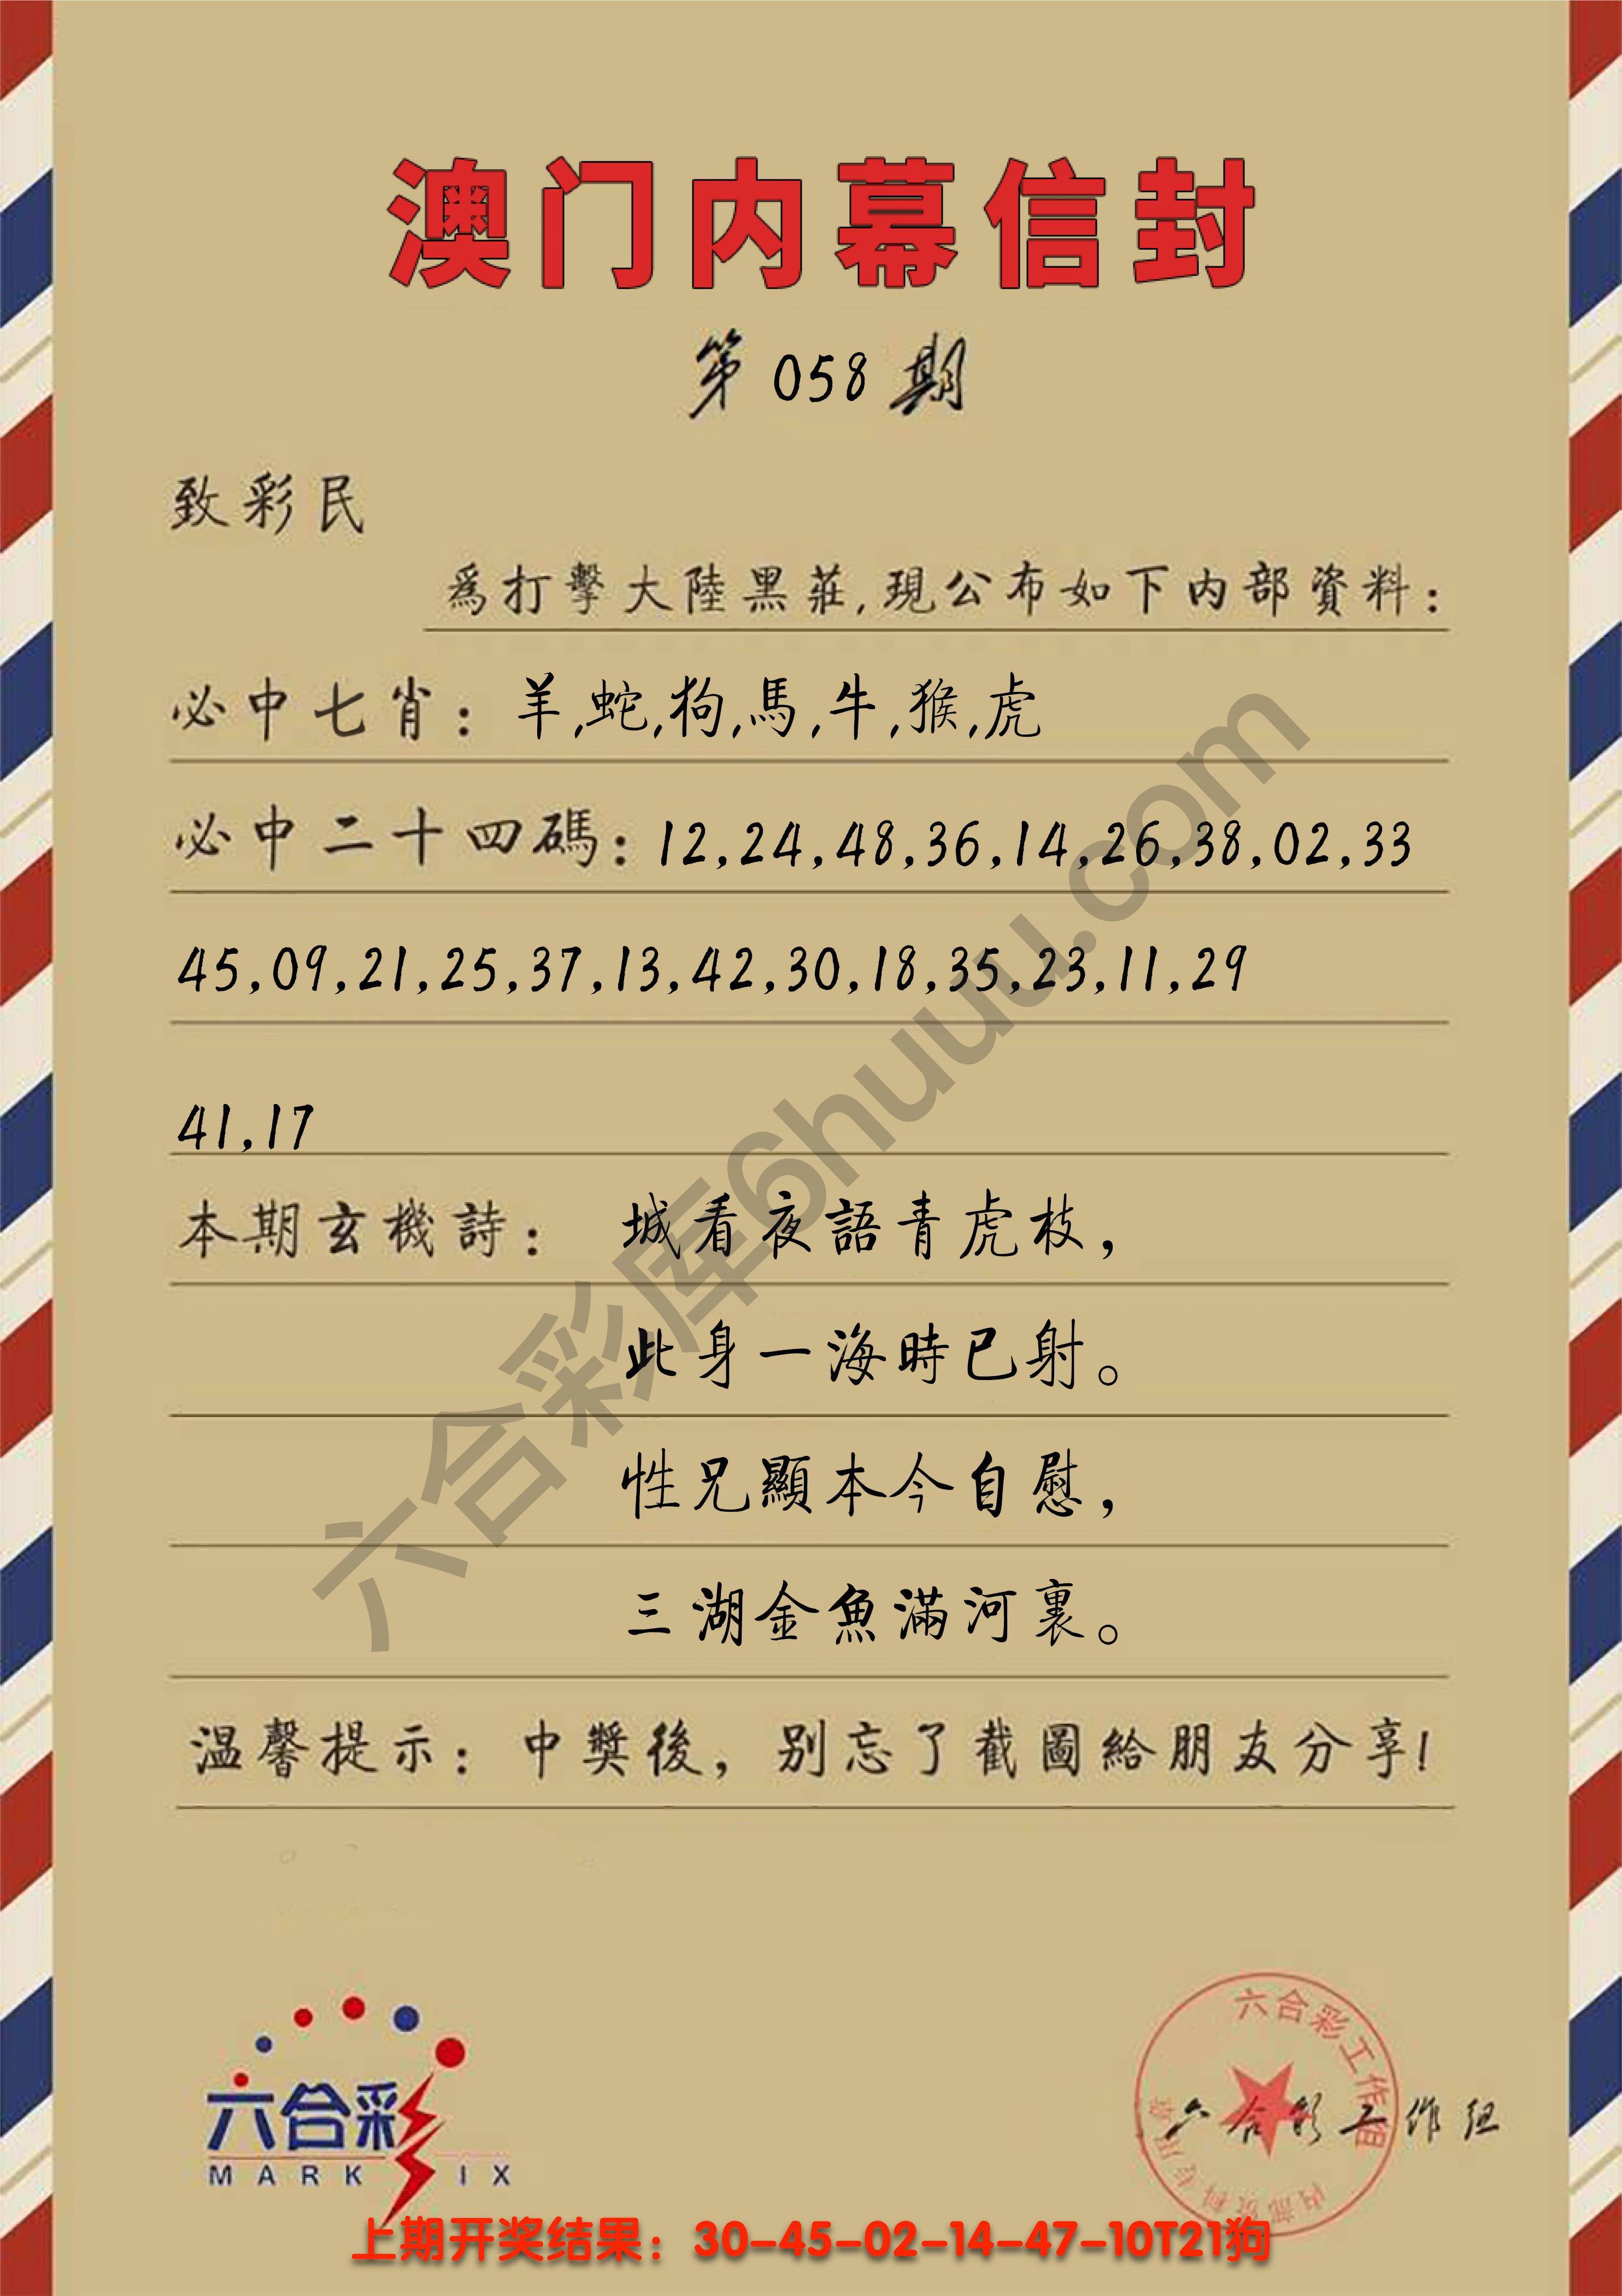 澳门内幕信封
第058期
致彩民
爲打擊大陸黑莊,現公布如下内部資料:
必中七肖: 羊,蛇,狗,馬,牛,猴,虎
必中二十四碼: 12,24,48,36,14,26,38,02,33
45,09,21,25,37,13,42,30,18,35,23,11,29
41,17
本期玄機詩: 城看夜語青虎枝,
此身一海時已射。
性兄顯本今自慰,
三湖金魚滿河裏。
温馨提示: 中獎後, 别忘了截圖給朋友分享!
六合彩库6huuu.com
六合彩
MARK SIX
六合彩工作组
内部资料专用章
六合彩工作组
上期开奖结果: 30-45-02-14-47-10T21狗